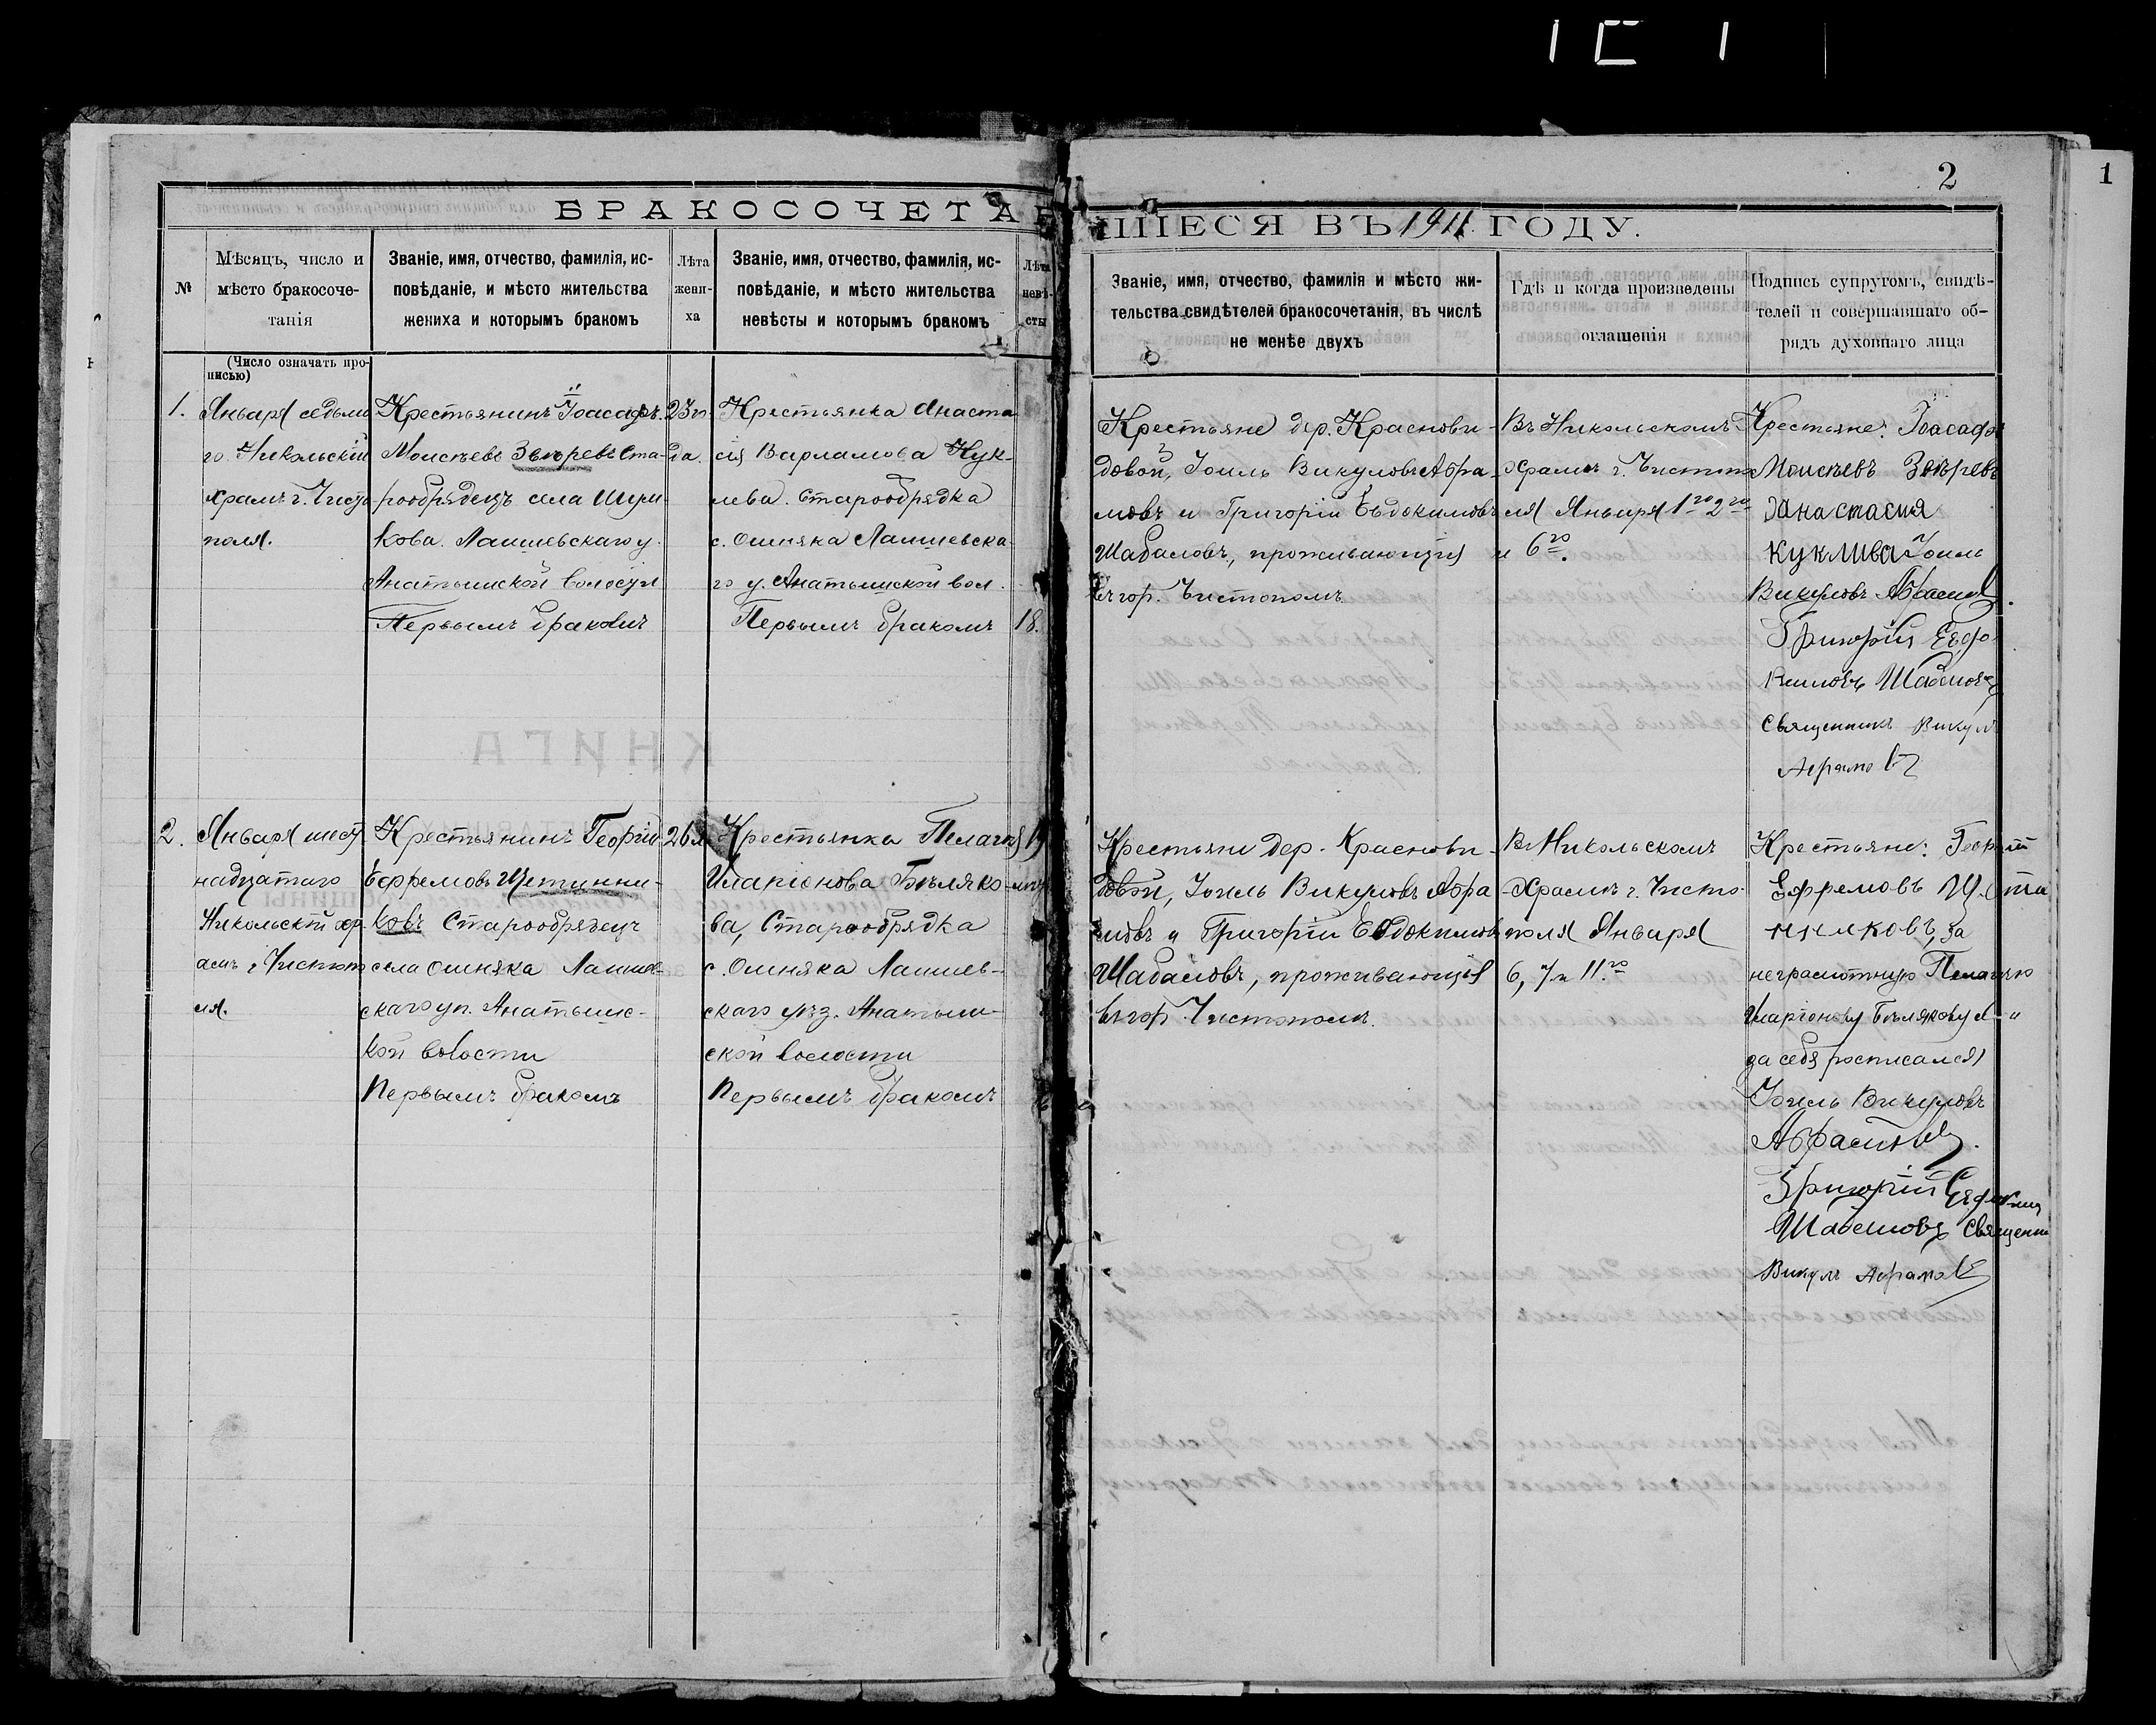 2
1
БРАКОСОЧЕТАВШІЕСЯ ВЪ 1911 ГОДУ.
№
Мѣсяцъ, число и
мѣсто бракосоче-
танія
Званіе, имя, отчество, фамилія, ис-
повѣданіе, и мѣсто жительства
жениха и которымъ бракомъ
Лѣта
жени-
ха
Званіе, имя, отчество, фамилія, ис-
повѣданіе, и мѣсто жительства
невѣсты и которымъ бракомъ
Лѣта
невѣ-
сты
Званіе, имя, отчество, фамилія и мѣсто жи-
тельства свидѣтелей бракосочетанія, въ числѣ
не менѣе двухъ
Гдѣ и когда произведены
оглашенія
Подпись супругомъ, свидѣ-
телей и совершавшаго об-
рядъ духовнаго лица
(Число означать про-
писью)
1.
Января седьма
го Никольскій
храмъ г. Чисто
поля.
Крестьянинъ Іоасафъ
Моисѣевъ Звѣревъ Ста-
рообрядецъ села Шум-
кова. Лаишевскаго у.
Анатышской волости
Первымъ бракомъ
23 го
да.
Крестьянка Анаста
сія Варламова Кук-
лева. Старообрядка
с. Ошняка Лаишевска-
го у. Анатышской вол.
Первымъ бракомъ
18.
Крестьяне дер. Краснови-
довой, Іоиль Викуловъ Абра-
мовъ и Григорій Евдокимовъ
Шабаловъ, проживающія
въ гор. Чистополѣ
Въ Никольскомъ
храмѣ г. Чистопо
ля Января 1го 2го
и 6го.
Крестьяне: Іоасафъ
Моисѣевъ Звѣревъ
Анастасия
Куклива Іоиль
Викуловъ Абрамовъ.
Григорій Евдо
кимовъ Шабаловъ
Священникъ Викулъ
Абрамовъ
2.
Января шест
надцатаго
Никольскій хр
амъ г. Чистопо
ля.
Крестьянинъ Георгій
Ефремовъ Щетинни-
ковъ Старообрядецъ
села Ошняка Лаишев-
скаго уп. Анатышс-
кой волости
Первымъ бракомъ
26 л.
Крестьянка Пелагія
Иларіонова Бѣляко-
ва, Старообрядка
с. Ошняка Лаишев-
скаго уѣз. Анатыш-
ской волости
Первымъ бракомъ
19
Крестьяни дер. Краснови-
довой, Іоиль Викуловъ Абра
мовъ и Григорій Евдокимовъ
Шабаловъ, проживающія
въ гор. Чистополѣ.
Въ Никольскомъ
Храмѣ г. Чисто-
поля Января
6, 7 и 11.го
Крестьяне: Георгій
Ефремовъ Щета
никовъ, за
неграмотную Пелагію
Иларіонову Бѣлякову и
за себя росписался
Іоиль Викуловъ
Абрамовъ.
Григорій Евдокимъ
Шабаловъ Священни
Викулъ Абрамовъ